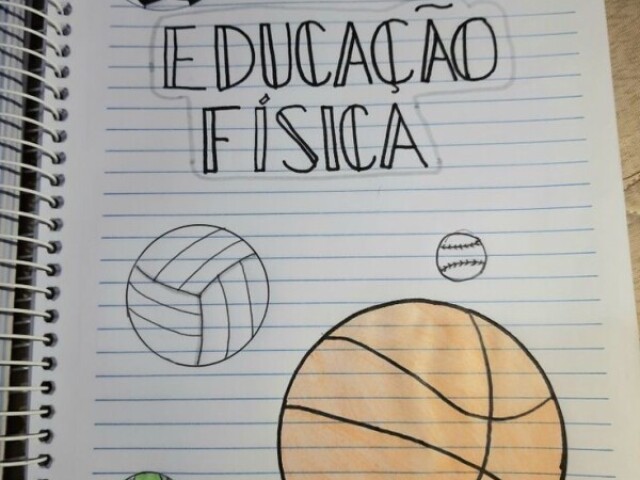 EDUCAÇÃO
FÍSICA